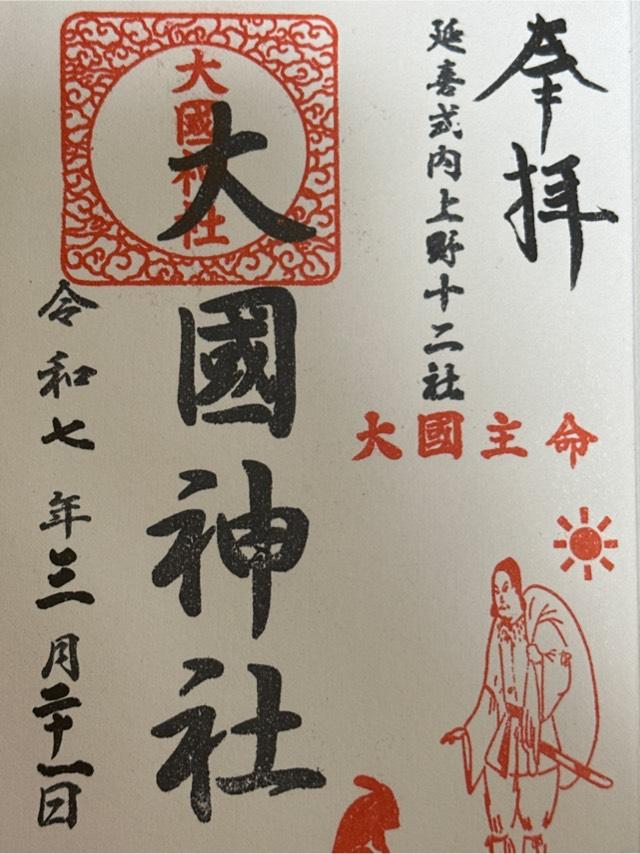 奉拝
延喜式内上野十二社
大國主命
大國神社
大國神社
令和七年三月二十一日